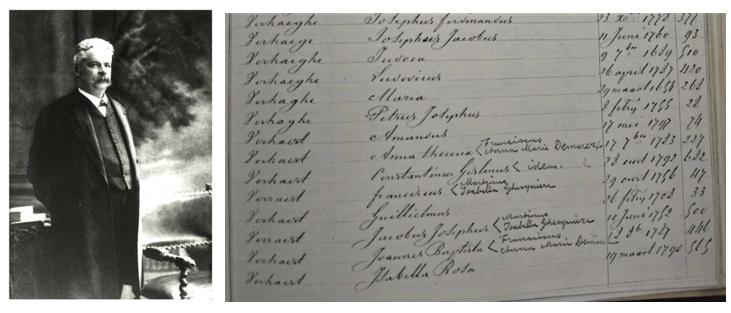 Verhaeghe Josephus Ferdinandus 23 xbre 1778 377
Verhaege Josephus Jacobus 11 Juni 1760 93
Verhaeghe Judoca 9 7bre 1689 510
Verhaeghe Ludovicus 26 april 1787 420
Verhaghe Maria 29 maart 1654 268
Verhaeghe Petrus Josephus 8 febry 1755 28
Verhaert Amandus 17 mei 1797 74
Verhaert Anna theresia Franciscus Anna Marie Demarez 17 7bre 1783 227
Verhaert Constantinus idem. 28 oust 1792 622
Verraert franciscus Martinus Isabella Ghesquiere 29 oust 1756 47
Verhaert Guillielmus 26 febry 1708 33
Verraert Jacobus Josephus Martinus Isabella Ghesquiere 10 Juni 1752 500
Verhaert Joannes Baptista Franciscus Anna Marie 1787 446
Verhaert Isabella Rosa 19 maart 1790 565